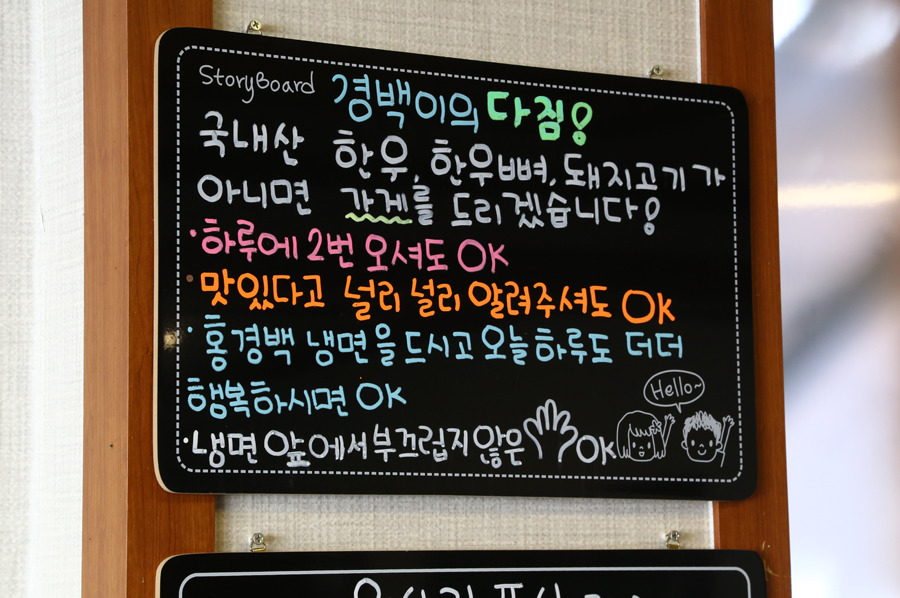 StoryBoard 경백이의 다짐!
국내산 한우, 한우뼈, 돼지고기가
아니면 가게를 드리겠습니다!
·하루에 2번 오셔도 OK
·맛있다고 널리 널리 알려주셔도 OK
·홍경백 냉면을 드시고 오늘하루도 더더
행복하시면 OK
Hello~
·냉면 앞에서 부끄럽지 않은 OK